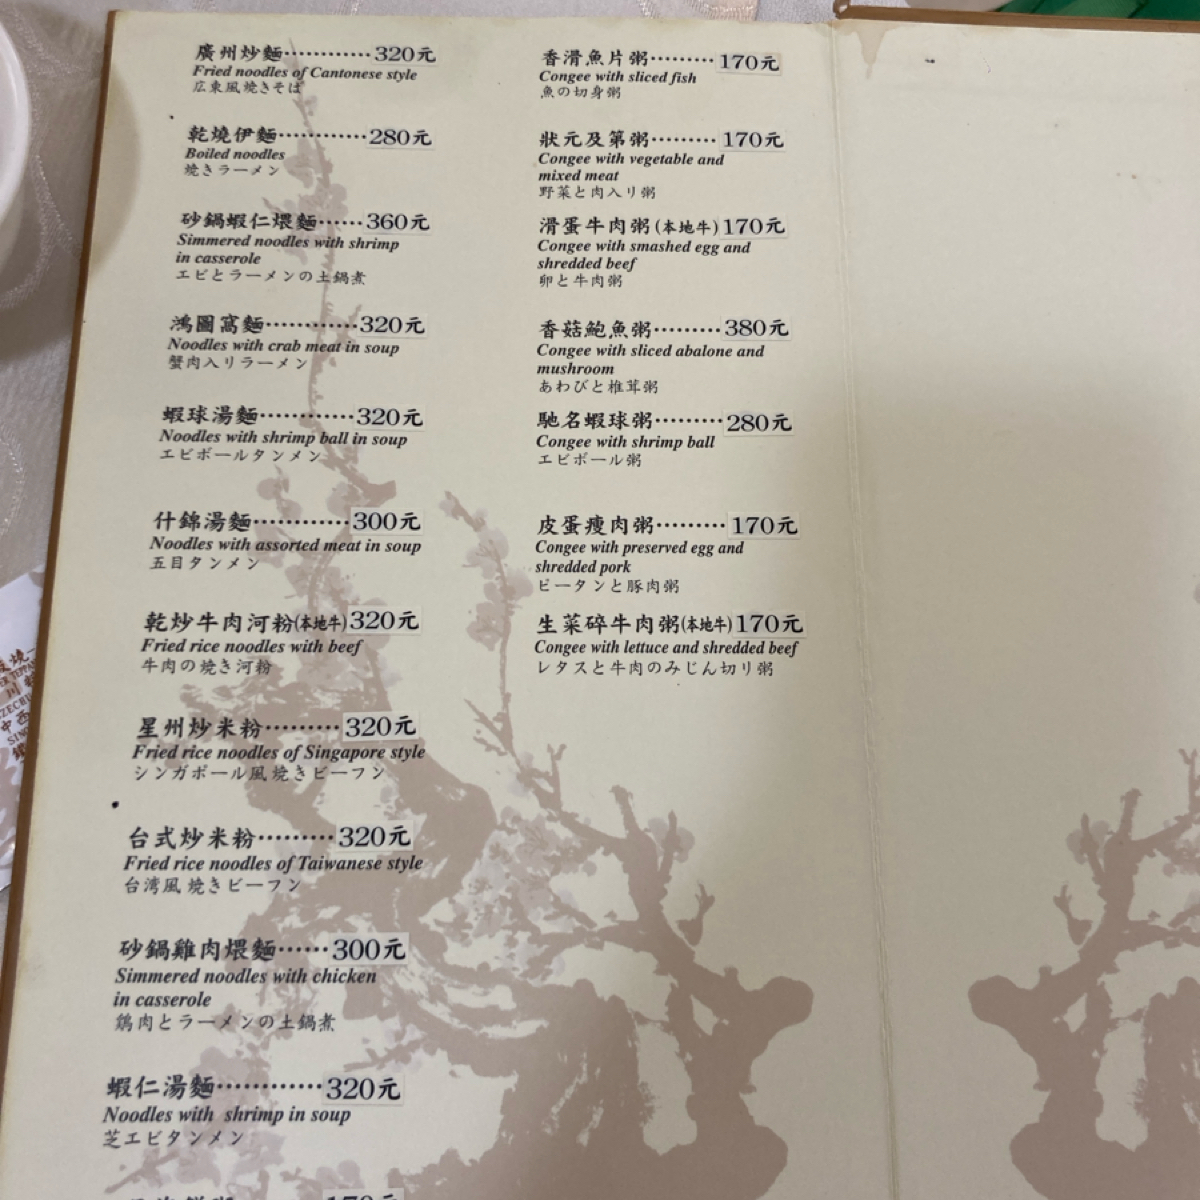 廣州炒麵············320元
Fried noodles of Cantonese style
広東風焼きそば
乾燒伊麵············280元
Boiled noodles
焼きラーメン
砂鍋蝦仁煨麵······360元
Simmered noodles with shrimp
in casserole
エビとラーメンの土鍋煮
鴻圖窩麵············320元
Noodles with crab meat in soup
蟹肉入リラーメン
蝦球湯麵············320元
Noodles with shrimp ball in soup
エビボールタンメン
什錦湯麵············300元
Noodles with assorted meat in soup
五目タンメン
乾炒牛肉河粉(本地牛)320元
Fried rice noodles with beef
牛肉の焼き河粉
星州炒米粉·········320元
Fried rice noodles of Singapore style
シンガポール風焼きビーフン
台式炒米粉·········320元
Fried rice noodles of Taiwanese style
台湾風焼きビーフン
砂鍋雞肉煨麵······300元
Simmered noodles with chicken
in casserole
鶏肉とラーメンの土鍋煮
蝦仁湯麵············320元
Noodles with shrimp in soup
芝エビタンメン
香滑魚片粥·········170元
Congee with sliced fish
魚の切身粥
狀元及第粥·········170元
Congee with vegetable and
mixed meat
野菜と肉入リ粥
滑蛋牛肉粥(本地牛)170元
Congee with smashed egg and
shredded beef
卵と牛肉粥
香菇鮑魚粥·········380元
Congee with sliced abalone and
mushroom
あわびと椎茸粥
馳名蝦球粥·········280元
Congee with shrimp ball
エビボール粥
皮蛋瘦肉粥·········170元
Congee with preserved egg and
shredded pork
ピータンと豚肉粥
生菜碎牛肉粥(本地牛)170元
Congee with lettuce and shredded beef
レタスと牛肉のみじん切リ粥